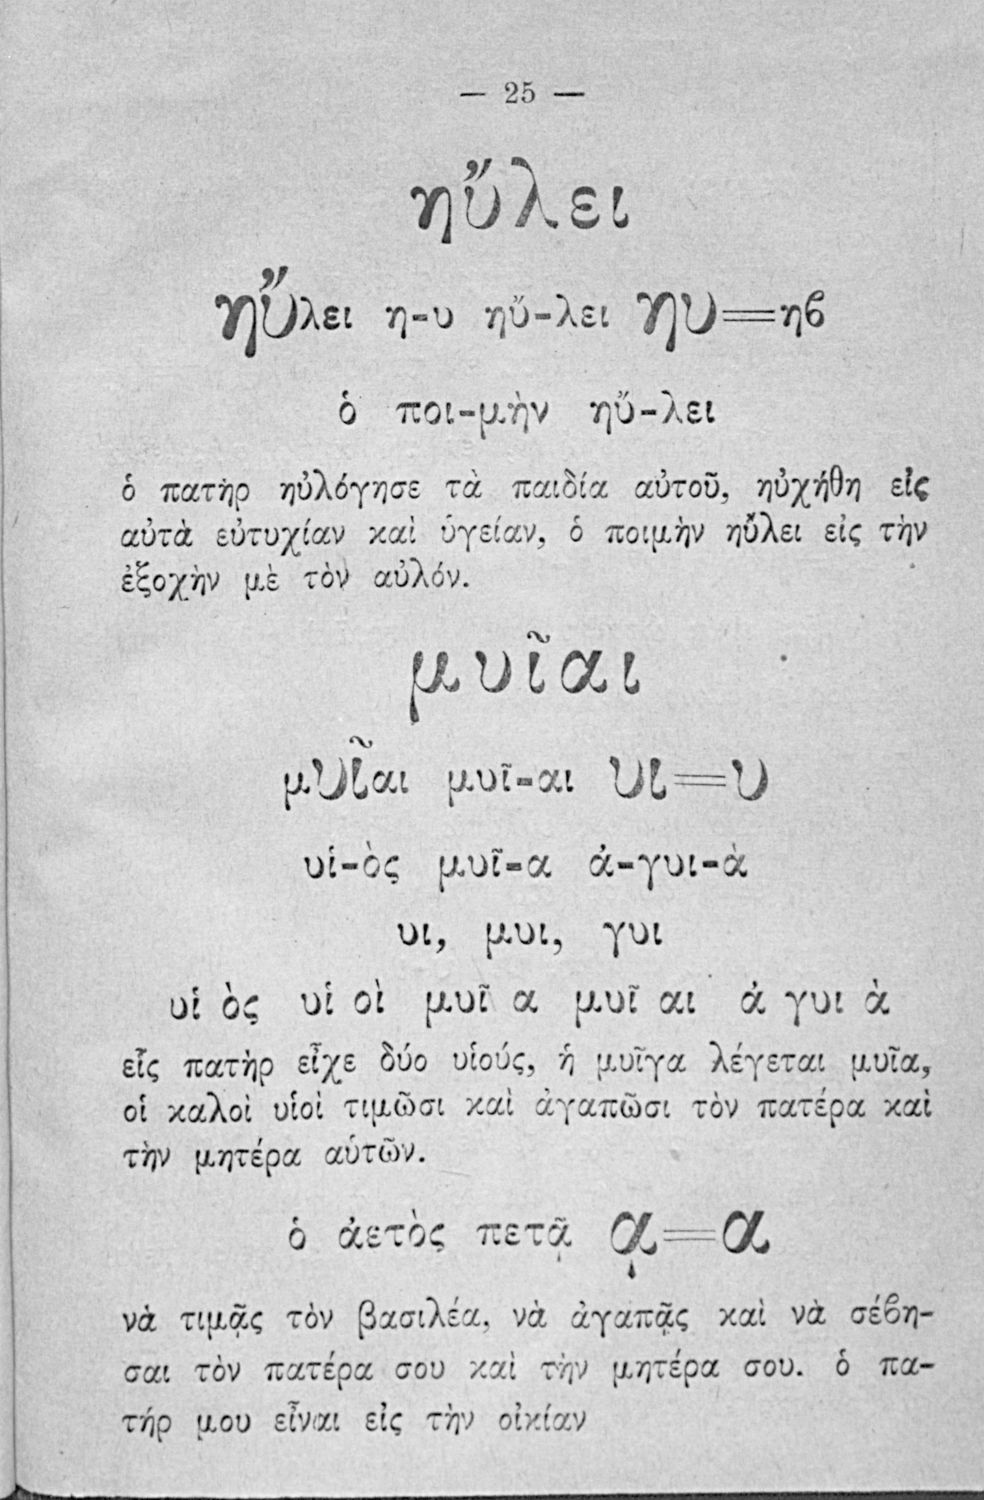 — 25 —
ηὔλει
ηὔλει η-υ ηὔ-λει ηυ=ηϐ
ὁ ποι-μὴν ηὔ-λει
ὁ πατὴρ ηὐλόγησε τὰ παιδία αὐτοῦ, ηὐχήθη εἰς
αὐτὰ εὐτυχίαν καὶ ὑγείαν, ὁ ποιμὴν ηὔλει εἰς τὴν
ἐξοχὴν μὲ τὸν αὐλόν.
μυῖαι
μυῖαι μυῖ-αι υι=υ
υἱ-ὸς μυῖ-α ἀ-γυι-ὰ
υι, μυι, γυι
υἱ ὸς υἱ οὶ μυῖ α μυῖ αι ἀ γυι ὰ
εἷς πατὴρ εἶχε δύο υἱούς, ἡ μυῖγα λέγεται μυῖα,
οἱ καλοὶ υἱοὶ τιμῶσι καὶ ἀγαπῶσι τὸν πατέρα καὶ
τὴν μητέρα αὑτῶν.
ὁ ἀετὸς πετᾷ ᾳ=α
νὰ τιμᾷς τὸν βασιλέα, νὰ ἀγαπᾷς καὶ νὰ σέϐη-
σαι τὸν πατέρα σου καὶ τὴν μητέρα σου. ὁ πα-
τήρ μου εἶναι εἰς τὴν οἰκίαν